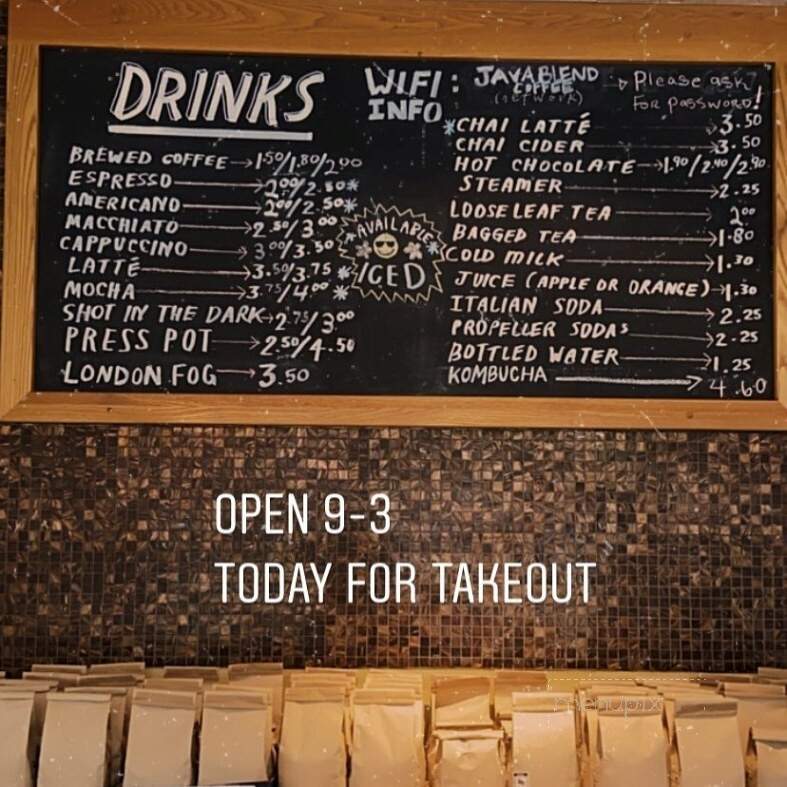 DRINKS
BREWED COFFEE → 1.50/1.80/2.00
ESPRESSO → 2.00/2.50*
AMERICANO → 2.00/2.50*
MACCHIATO → 2.50/3.00
CAPPUCCINO → 3.00/3.50
LATTÉ → 3.50/3.75 *
MOCHA → 3.75/4.00 *
SHOT IN THE DARK → 2.75/3.00
PRESS POT → 2.50/4.50
LONDON FOG → 3.50
*AVAILABLE*
ICED
WIFI : JAVABLEND → Please ask
INFO COFFEE FOR PASSWORD!
(network)
*CHAI LATTÉ → 3.50
CHAI CIDER → 3.50
HOT CHOCOLATE → 1.90/2.40/2.90
STEAMER → 2.25
LOOSE LEAF TEA 2.00
BAGGED TEA → 1.80
COLD MILK → 1.30
JUICE (APPLE OR ORANGE) → 1.30
ITALIAN SODA → 2.25
PROPELLER SODAs → 2.25
BOTTLED WATER → 1.25
KOMBUCHA → 4.60
OPEN 9-3
TODAY FOR TAKEOUT
menupix